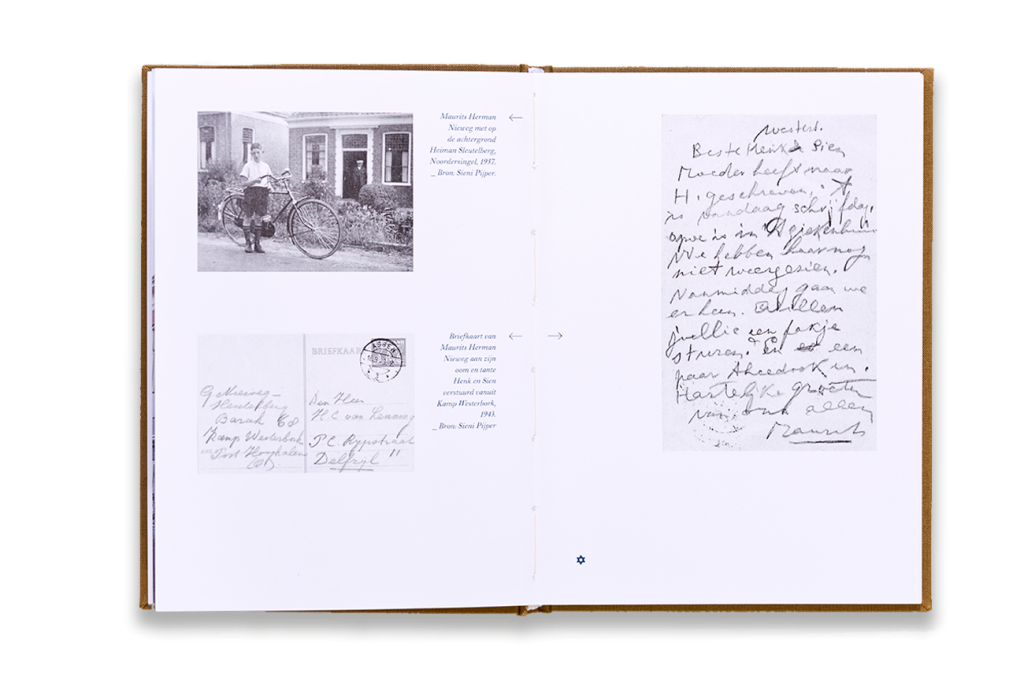 Maurits Herman
Nieweg met op
de achtergrond
Heiman Sleutelberg,
Noordersingel, 1937.
_ Bron. Sieni Pijper.
Briefkaart van
Maurits Herman
Nieweg aan zijn
oom en tante
Henk en Sien
verstuurd vanuit
Kamp Westerbork,
1943.
_ Bron. Sieni Pijper
BRIEFKAART
ASSEN
G. Nieweg-
Barak 68
Kamp Westerbork
Post Hooghalen
Den Heer
H.C. van
P.C.
Delfzijl
Westerb.
Beste Henk en Sien
Moeder heeft naar
H. geschreven.
is vandaag schrijfdag.
opoe is in 't ziekenhuis
We hebben haar nog
niet weergezien.
Vanmiddag gaan we
erheen. Willen
jullie een pakje
sturen. En een
paar in.
Hartelijke groeten
van ons allen
Maurits